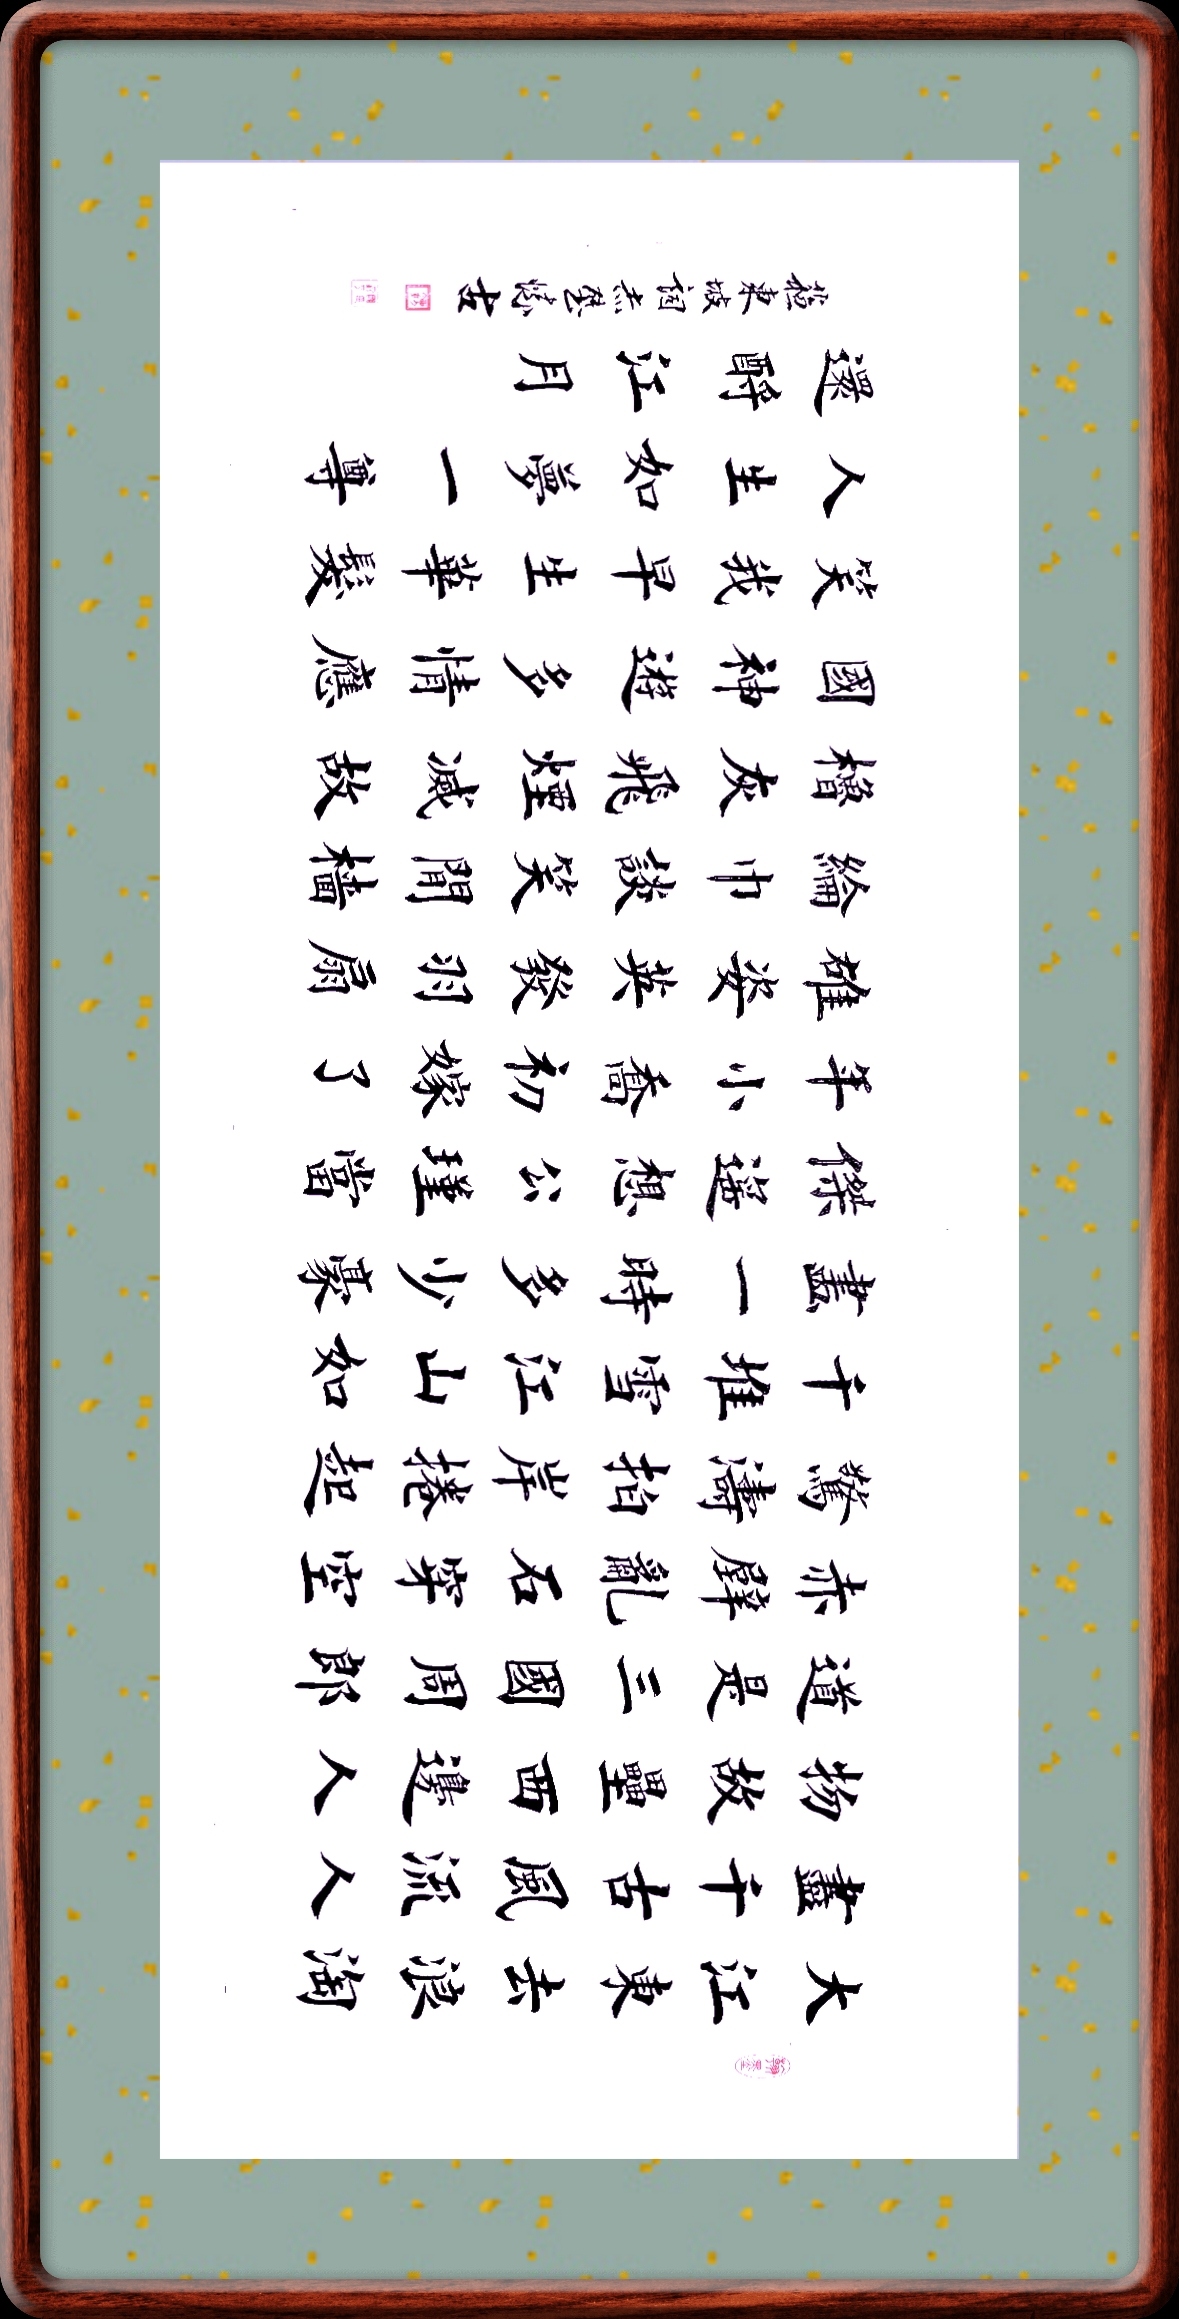 大江東去浪淘
盡千古風流人
物故壘西邊人
道是三國周郎
赤壁亂石穿空
驚濤拍岸捲起
千堆雪江山如
畫一時多少豪
傑遙想公瑾當
年小喬初嫁了
雄姿英發羽扇
綸巾談笑間檣
櫓灰飛煙滅故
國神遊多情應
笑我早生華髮
人生如夢一尊
還酹江月
蘇東坡詞赤壁懷古